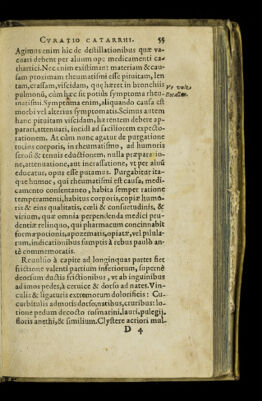 CVRATIO CATARRHI. 55
Agimus enim hic de destillationibus quæ va-
cuari debent per aluum ope medicamenti ca-
thartici. Nec enim existimant materiam & cau-
sam proximam rheumatismi esse pituitam, len
tam, crassam, viscidam, quę hæret in bronchiis
pulmonũ, cùm hæc sit potiùs symptoma rheu-
matismi. Symptoma enim, aliquando causa est
morbi vel alterius symptomatis. Scimus autem
hanc pituitam viscidam, ita tentem debere ap-
parari, attenuari, incidi ad faciliorem expecto-
rationem. At cùm nunc agatur de purgatione
totius corporis, in rheumatismo, ad humoris
serosi & tenuis eductionem, nulla præparatio-
ne, attenuatione, aut incrassatione, vt per aluũ
educatur, opus esse putamus. Purgabitur ita-
que humor, qui rheumatismi est causa, medi-
camento consentaneo, habita semper ratione
temperamenti, habitus corporis, copiæ humo-
ris & eius qualitatis, cœli & consuetudinis, &
virium, quæ omnia perpendenda medici pru-
dentiæ relinquo, qui pharmacum concinnabit
forma potionis, apozematis, opiatæ, vel pilula-
rum, indicationibus sumptis à rebus paulò an-
tè commemoratis.
Reuulsio à capite ad longinquas partes fiet
frictione valenti partium inferiorum, supernè
deorsum ductis frictionibus, vt ab inguinibus
ad imos pedes, à ceruice & dorso ad nates. Vin-
culis & ligaturis extremorum dolorificis: Cu-
curbitulis admotis dorso, natibus, cruribus: lo-
tione pedum decocto rosmarini, lauri, pulegij,
floris anethi, & similium. Clystere acriori mul-
D 4